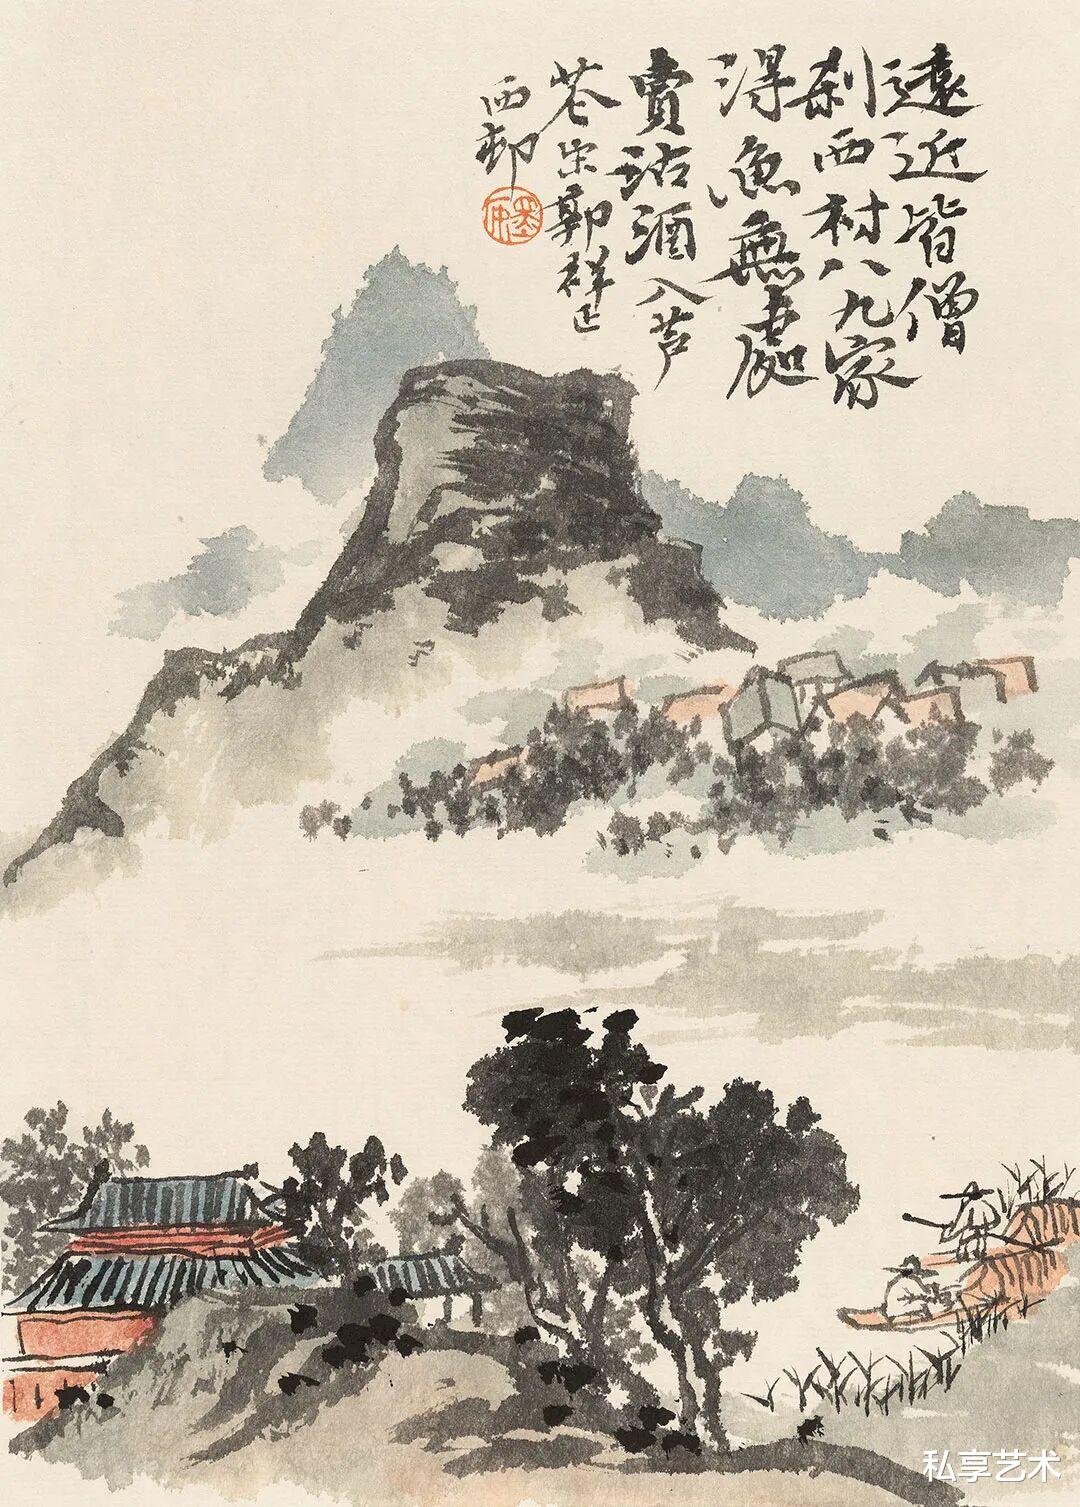 遠近皆僧
刹西村八九家
得魚無處
賣沽酒入芦
花宋郭祥正
西邨
私享艺术